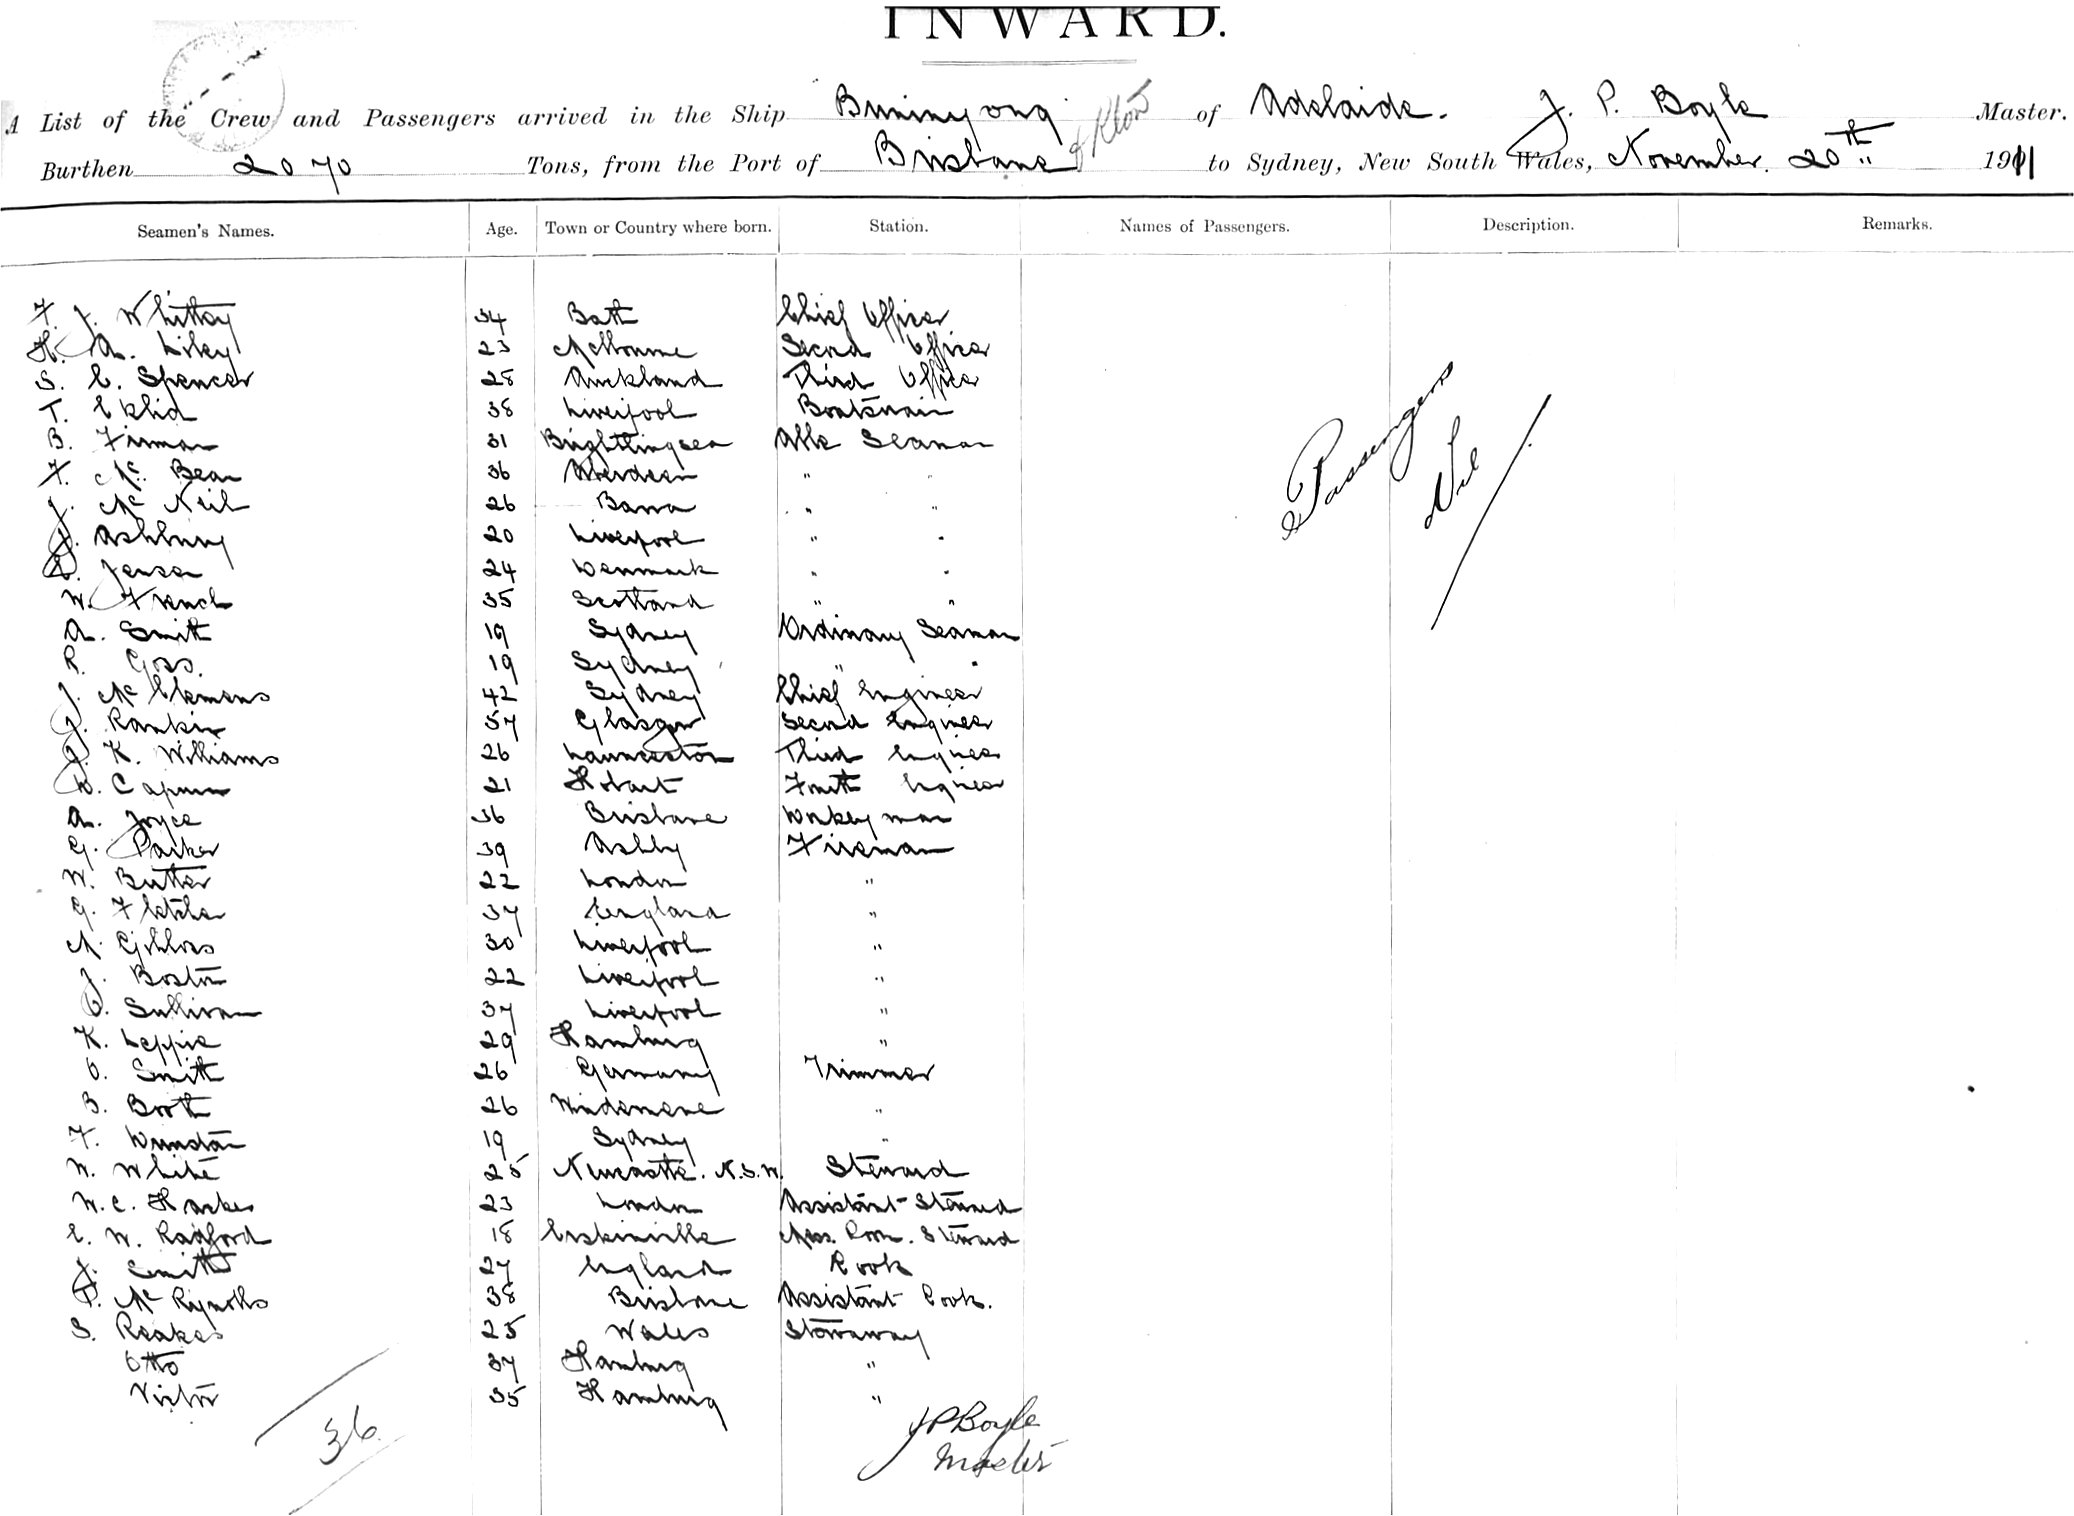 INWARD.
A List of the Crew and Passengers arrived in the Ship Buninyong of Adelaide. J. P. Boyle Master.
Burthen 2070 Tons, from the Port of Brisbane to Sydney, New South Wales, November 20th 1911
Seamen's Names. Age. Town or Country where born. Station. Names of Passengers. Description. Remarks.
F. J. Whitty 34 Bath Chief Officer
H. A. Liley 23 Melbourne Second Officer
S. C. Spencer 28 Auckland Third Officer
T. Eklid 38 Liverpool Boatswain
B. Firman 31 Brightlingsea Able Seaman
F. Mc Bean 36 Aberdeen " "
J. Mc Neil 26 Barra " "
J. Ashbury 20 Liverpool " "
Jensen 24 Denmark " "
W. French 35 Scotland " "
A. Smith 19 Sydney Ordinary Seaman
R. Goss. 19 Sydney " "
J. Mc Clemens 42 Sydney Chief Engineer
J. Rankin 57 Glasgow Second Engineer
K. Williams 26 Launceston Third Engineer
D. Capurn 21 Hobart Fourth Engineer
A. Joyce 36 Brisbane Donkeyman
G. Parker 39 Ashby Fireman
W. Butter 22 London "
G. Fletcher 37 England "
M. 30 Liverpool "
J. Boston 22 Liverpool "
O. Sullivan 37 Liverpool "
K. Leppie 29 Hamburg "
O. Smith 26 Germany Trimmer
B. Booth 26 Windemere "
F. Dunstan 19 Sydney "
W. White 25 Newcastle. N.S.W. Steward
W. C. Harker 23 London Assistant Steward
E. W. Radford 18 Erskinville Mess. Room. Steward
J. Smith 27 England Cook
P. Mc Rynolds 38 Brisbane Assistant Cook.
S. Reakes 25 Wales Stowaway
Otto 37 Hamburg "
Victor 35 Hamburg "
Passengers
Nil
36
J P Boyle
Master